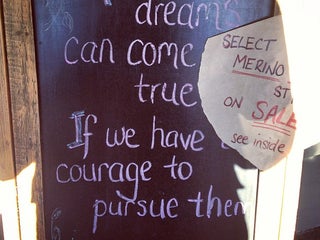 dreams
can come
true
If we have
courage to
pursue them
SELECT
MERINO
ON SALE
see inside